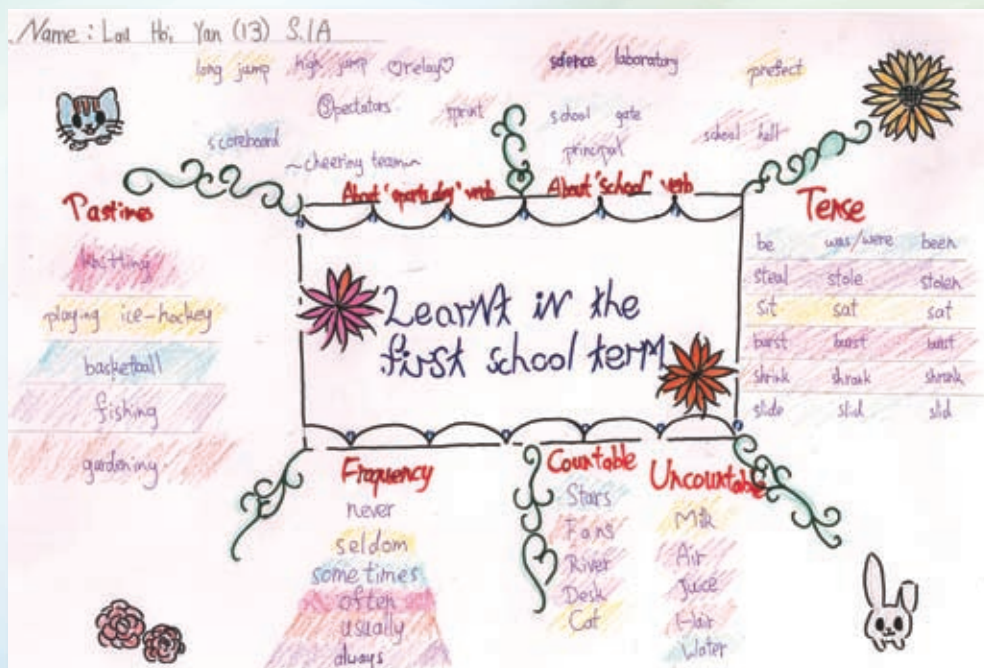 Name: Lau Hoi Yan (13) S.1A
long jump high jump relay
science laboratory
prefect
Spectators sprint
school gate
scoreboard
principal
school hall
~cheering team~
About "sports day" verb
About "school" verb
Pastimes
knitting
playing ice-hockey
basketball
fishing
gardening
Learnt in the
first school term
Tense
be was/were been
steal stole stolen
sit sat sat
burst burst burst
shrink shrank shrunk
slide slid slid
Frequency
never
seldom
sometimes
often
usually
always
Countable
Stars
Fans
River
Desk
Cat
Uncountable
Milk
Air
Juice
Hair
Water